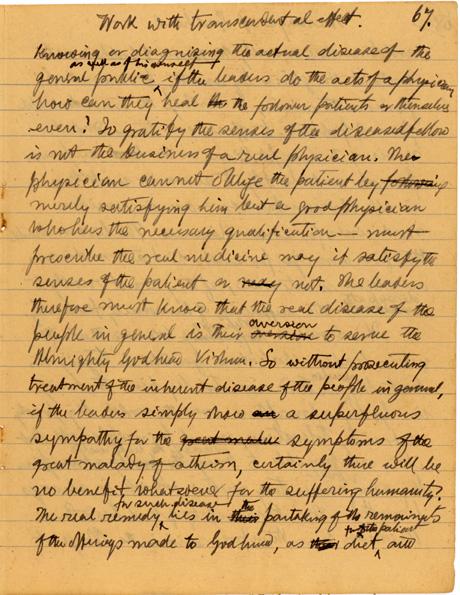 Work with transcendental effect.
67.
Knowing or diagnising the actual disease of the
as well as of himself
general public if the leaders do the acts of a physician
how can they heal the follower patients or themselves
even? To gratify the senses of the diseased fellow
is not the business of a real physician. The
physician cannot oblige the patient by following
merely satisfying him but a good physician
who has the necessary qualification — must
prescribe the real medicine may it satisfy the
senses of the patient or may not. The leaders
therefore must know that the real disease of the
aversion
people in general is their to serve the
Almighty Godhead Vishnu. So without prosecuting
treatment of the inherent disease of the people in general,
if the leaders simply show a superfluous
sympathy for the great malady symptoms of the
great malady of atheism, certainly there will be
no benefit whatsoever for the suffering humanity.
for such disease the
The real remedy lies in their partaking of the remnants
for the patient
of the offerings made to Godhead, as their diet, and